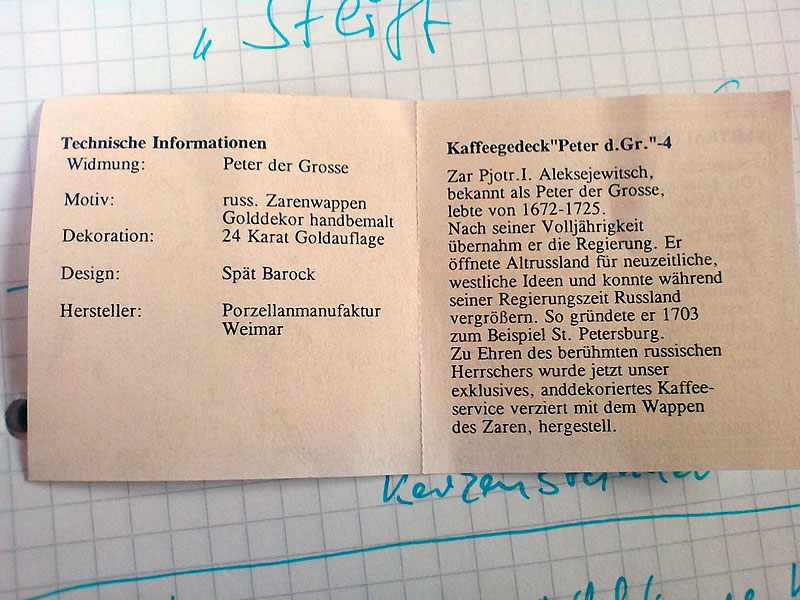 „Steiff
Technische Informationen
Widmung: Peter der Grosse
Motiv: russ. Zarenwappen
Golddekor handbemalt
Dekoration: 24 Karat Goldauflage
Design: Spät Barock
Hersteller: Porzellanmanufaktur
Weimar
Kaffeegedeck"Peter d.Gr."-4
Zar Pjotr.I. Aleksejewitsch,
bekannt als Peter der Grosse,
lebte von 1672-1725.
Nach seiner Volljährigkeit
übernahm er die Regierung. Er
öffnete Altrussland für neuzeitliche,
westliche Ideen und konnte während
seiner Regierungszeit Russland
vergrößern. So gründete er 1703
zum Beispiel St. Petersburg.
Zu Ehren des berühmten russischen
Herrschers wurde jetzt unser
exklusives, anddekoriertes Kaffee-
service verziert mit dem Wappen
des Zaren, hergestell.